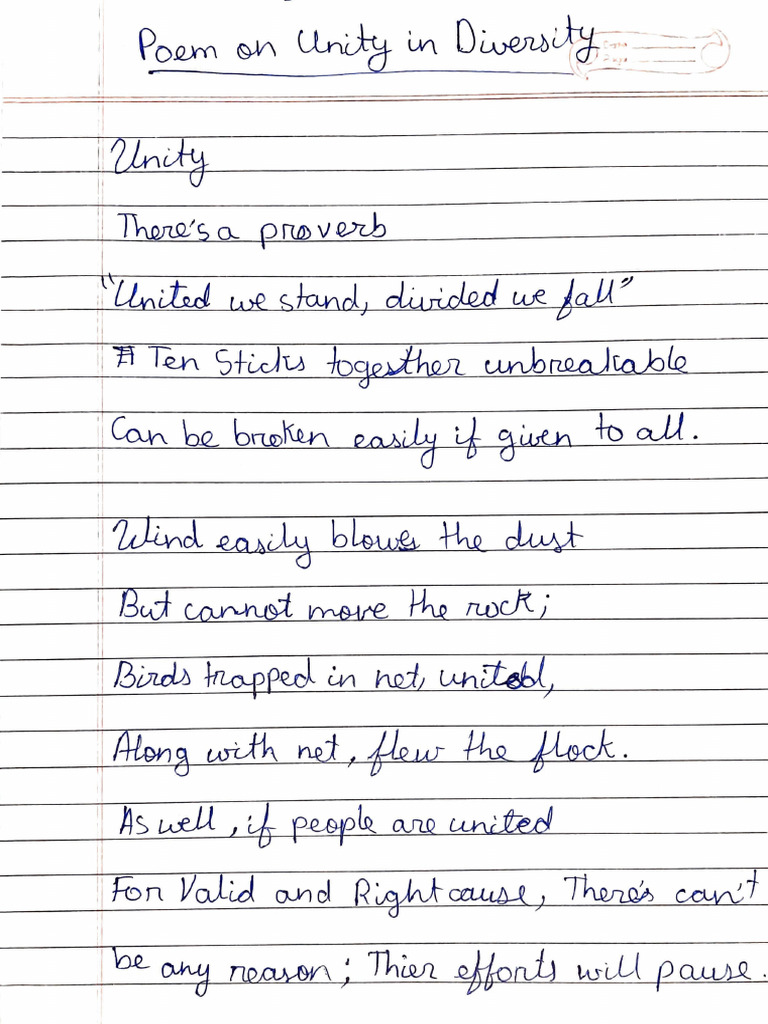 Poem on Unity in Diversity
Unity
There's a proverb
"United we stand, divided we fall"
Ten Sticks together unbreakable
Can be broken easily if given to all.
Wind easily blows the dust
But cannot move the rock;
Birds trapped in net, united,
Along with net, flew the flock.
As well, if people are united
For Valid and Right cause, There's can't
be any reason; Thier efforts will pause.